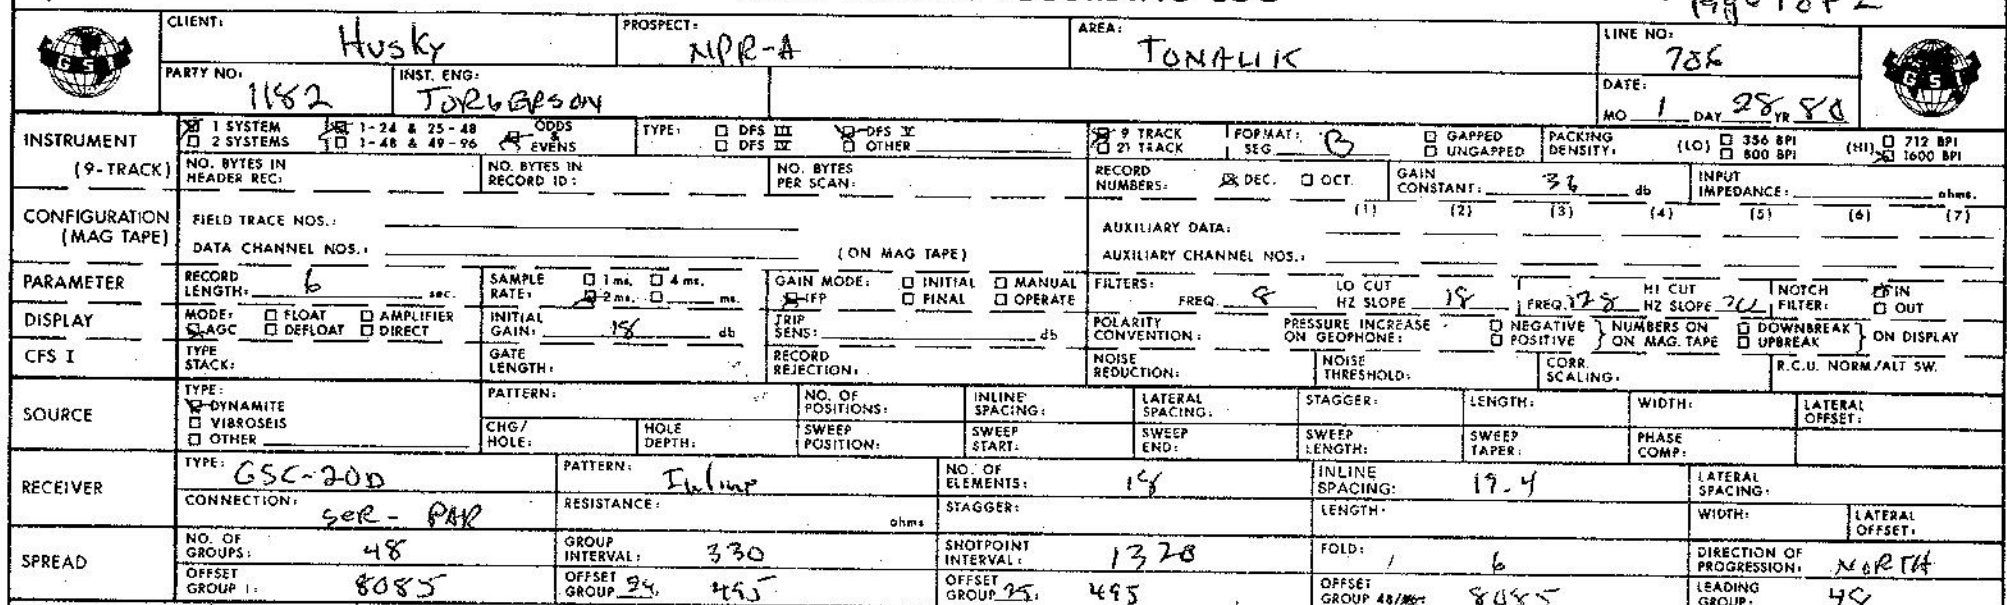 Page 1 of 2
CLIENT: Husky PROSPECT: NPR-A AREA: TONALIK LINE NO:
GSI PARTY NO: 1182 INST. ENG: TORGERSON DATE: MO 1 DAY 28 YR 80 GSI
INSTRUMENT 1 SYSTEM 1-24 & 25-48 ODDS & EVENS TYPE: DFS III DFS V 9 TRACK FORMAT: B GAPPED PACKING (LO) 356 BPI (HI) 712 BPI
2 SYSTEMS 1-48 & 49-96 DFS IV OTHER 21 TRACK SEG UNGAPPED DENSITY: 800 BPI 1600 BPI
(9-TRACK) NO. BYTES IN HEADER REC: NO. BYTES IN RECORD ID: NO. BYTES PER SCAN: RECORD NUMBERS: DEC. OCT. GAIN CONSTANT: 36 db INPUT IMPEDANCE: ohms.
CONFIGURATION FIELD TRACE NOS.: AUXILIARY DATA: (1) (2) (3) (4) (5) (6) (7)
(MAG TAPE) DATA CHANNEL NOS.: (ON MAG TAPE) AUXILIARY CHANNEL NOS.:
PARAMETER RECORD LENGTH: 6 sec. SAMPLE RATE: 1 ms. 4 ms. 2 ms. ms. GAIN MODE: INITIAL MANUAL IFP FINAL OPERATE FILTERS: FREQ. 8 LO CUT HZ SLOPE 18 FREQ. 128 HI CUT HZ SLOPE NOTCH FILTER: IN OUT
DISPLAY MODE: FLOAT AMPLIFIER AGC DEFLOAT DIRECT INITIAL GAIN: 18 db TRIP SENS: db POLARITY CONVENTION: PRESSURE INCREASE ON GEOPHONE: NEGATIVE POSITIVE NUMBERS ON ON MAG. TAPE DOWNBREAK UPBREAK ON DISPLAY
CFS I TYPE STACK: GATE LENGTH: RECORD REJECTION: NOISE REDUCTION: NOISE THRESHOLD: CORR. SCALING: R.C.U. NORM/ALT SW.
SOURCE TYPE: DYNAMITE VIBROSEIS OTHER PATTERN: NO. OF POSITIONS: INLINE SPACING: LATERAL SPACING: STAGGER: LENGTH: WIDTH: LATERAL OFFSET:
CHG/HOLE: HOLE DEPTH: SWEEP POSITION: SWEEP START: SWEEP END: SWEEP LENGTH: SWEEP TAPER: PHASE COMP:
RECEIVER TYPE: GSC-20D PATTERN: Inline NO. OF ELEMENTS: 18 INLINE SPACING: 19.4 LATERAL SPACING:
CONNECTION: SER-PAR RESISTANCE: ohms STAGGER: LENGTH: WIDTH: LATERAL OFFSET:
SPREAD NO. OF GROUPS: 48 GROUP INTERVAL: 330 SHOTPOINT INTERVAL: 1320 FOLD: 6 DIRECTION OF PROGRESSION: NORTH
OFFSET GROUP 1: 8085 OFFSET GROUP 24: 495 OFFSET GROUP 25: 495 OFFSET GROUP 48/96: 8085 LEADING GROUP: 48